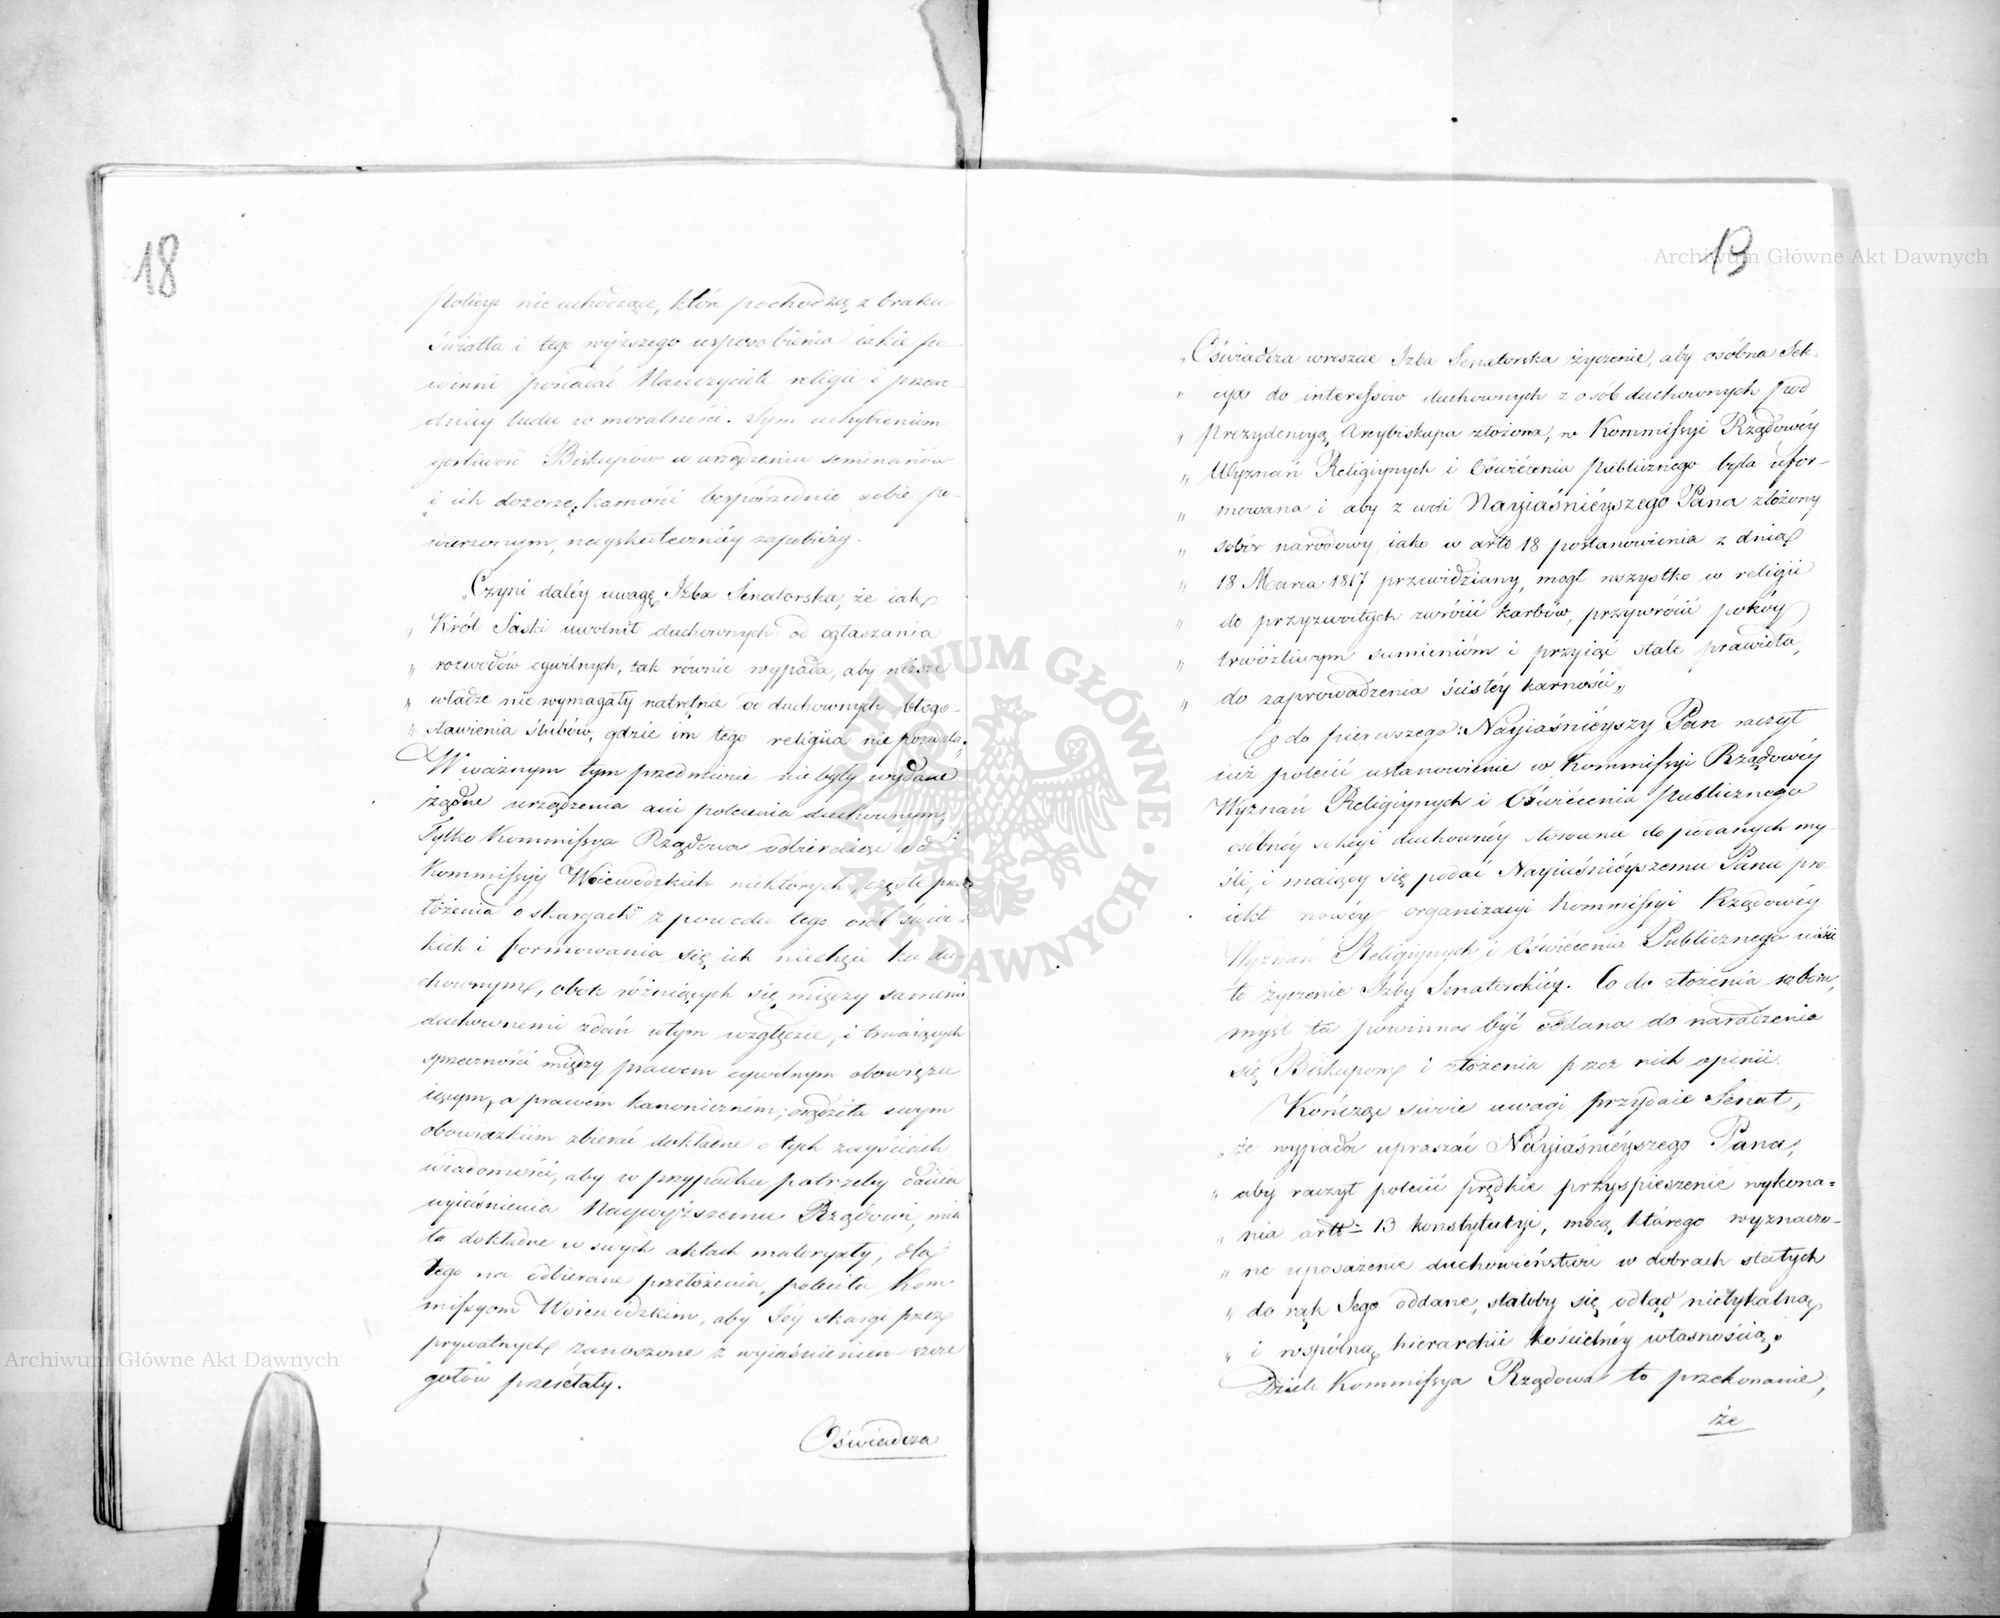 18
Policyi nie uchodzące, które pochodzą z braku
światła i tego wyższego usposobienia iakie po-
winni posiadać Nauczyciele religii i przew-
dnicy ludu w moralności. Tym uchybieniom
gorliwość Biskupów w urządzeniu seminariów
i ich dozorze, karności bezpośrednie sobie po-
wierzonym, nayskuteczniéy zapobieży.
„Czyni daléy uwagę Izba Senatorska, że iak
„ Król Saski uwolnił duchownych od ogłaszania
„ rozwodów cywilnych, tak równie wypada, aby niższe
„ władze nie wymagały natrętnie od duchownych błogo-
„ sławienia ślubów, gdzie im tego religiia nie pozwala.
W ważnym tym przedmiocie nie były wydane
żądne urządzenia ani polecenia duchownym,
Tylko Kommissya Rządowa odbieraiąc od
Kommissyi Woiewodzkich niektórych częste prze
łożenia o skargach z powodu tego osób świec-
kich i formowania się ich niechęci ku du-
chownym, obok różniących się między samemi
duchownemi zdań w tym względzie, i trwaiących
sprzeczności między prawem cywilnym obowięzu
iącym, a prawem kanoniczném; osądziła swym
obowiązkiem zbierać dokładne o tych zayściach
wiadomości, aby w przypadku potrzeby dania
wyiaśnienia Naywyższemu Rządowi, mia
ła dokładne w swych aktach materyały, dla
tego na odbierane przełożenia, poleciła Kom
missyom Woiewodzkim, aby Jéy skargi przez
prywatnych zanoszone z wyiaśnieniem szcze
gołów przesełały.
Oświadcza
13
„Oświadcza wreszcie Izba Senatorska życzenie, aby osóbna Sek-
„ cya do interessów duchownych z osób duchownych pod
„ prezydencyą Arcybiskupa złożona, w Kommissyi Rządowéy
„ Wyznań Religiynych i Oświécenia Publicznego była ufor-
„ mowana i aby z woli Nayiaśniéyszego Pana złożony
„ sobór narodowy, iako w arte 18 postanowienia z dnia
„ 18 Marca 1817 przewidziany, mógł wszystko w religii
„ do przyzwoitych zwrócić karbów, przywrócić pokóy
„ trwożliwym sumienióm i przyiąć stałe prawidła,
„ do zaprowadzenia ścisłéy karności„
Co do pierwszego: Nayiaśniéyszy Pan raczył
iuż polecić ustanowienie w Kommissyi Rządowéy
Wyznań Religiynych i Oświécenia Publicznego
osobnéy sekcyi duchownéy stosownie do podanych my-
śli, i maiący się podać Nayiaśniéyszemu Panu pro
iekt nowéy organizacyi Kommissyi Rządowéy
Wyznań Religiynych i Oświécenia Publicznego uiści
to życzenie Izby Senatorskiéy. Co do złożenia soboru,
myśl ta powinna być oddana do naradzenia
się Biskupom i złożenia przez nich opinii.
Kończąc swoie uwagi przydaie Senat,
„ że wypada upraszać Nayiaśniéyszego Pana,
„ aby raczył polecić prędkie przyspieszenie wykona-
„ nia artt= 13 konstytucyi, mocą którego wyznaczo-
„ ne uposażenie duchowieństwu w dobrach stałych
„ do rąk Jego oddane, stałoby się odtąd nietykalną
„ i wspólną hierarchii kościelnéy własnością„
Dzieli Kommissya Rządowa to przekonanie,
że